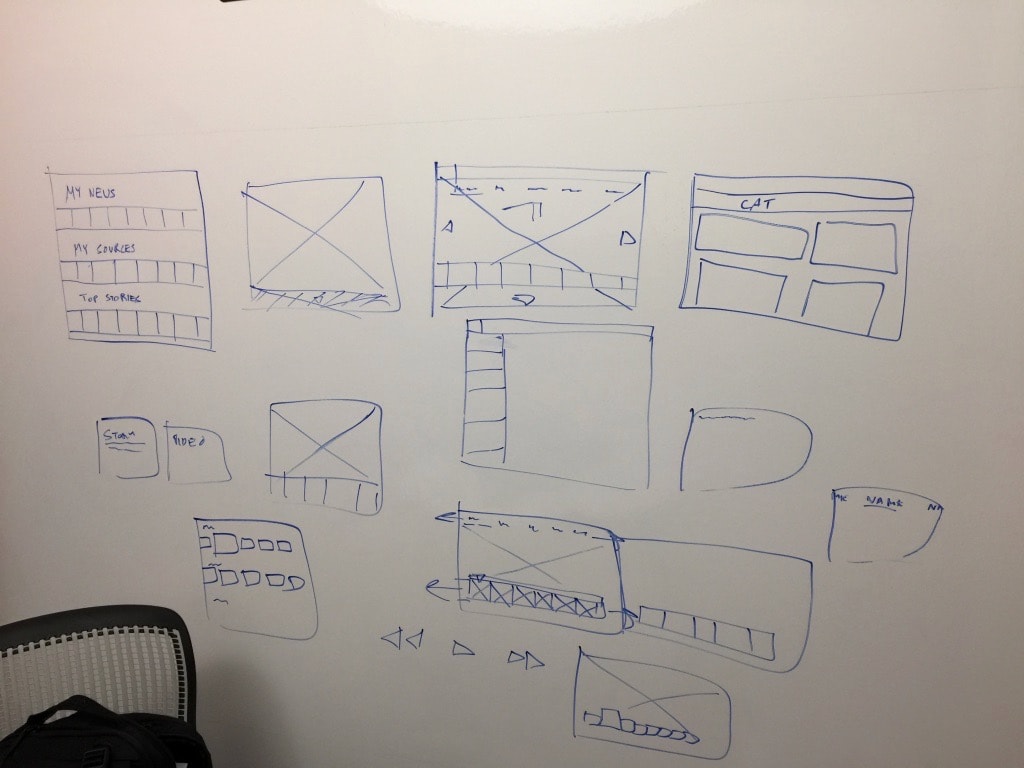 MY NEWS
MY SOURCES
TOP STORIES
CAT
VIDEO
NAME